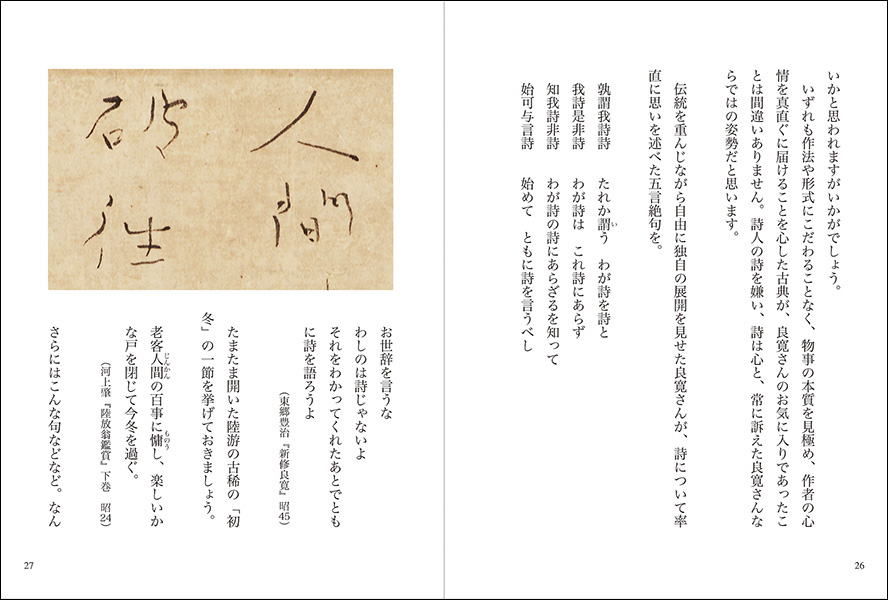 いかと思われますがいかがでしょう。
いずれも作法や形式にこだわることなく、物事の本質を見極め、作者の心
情を真直ぐに届けることを心した古典が、良寛さんのお気に入りであったこ
とは間違いありません。詩人の詩を嫌い、詩は心と、常に訴えた良寛さんな
らではの姿勢だと思います。
伝統を重んじながら自由に独自の展開を見せた良寛さんが、詩について率
直に思いを述べた五言絶句を。
孰謂我詩詩 たれか謂う わが詩を詩と
い
我詩是非詩 わが詩は これ詩にあらず
知我詩非詩 わが詩の詩にあらざるを知って
始可与言詩 始めて ともに詩を言うべし
26
人間
破往
お世辞を言うな
わしのは詩じゃないよ
それをわかってくれたあとでとも
に詩を語ろうよ
(東郷豊治『新修良寛』昭45)
たまたま開いた陸游の古稀の「初
冬」の一節を挙げておきましょう。
老客人間の百事に慵し、楽しいか
じんかん ものう
な戸を閉じて今冬を過ぐ。
(河上肇『陸放翁鑑賞』下巻 昭24)
さらにはこんな句などなど。なん
27